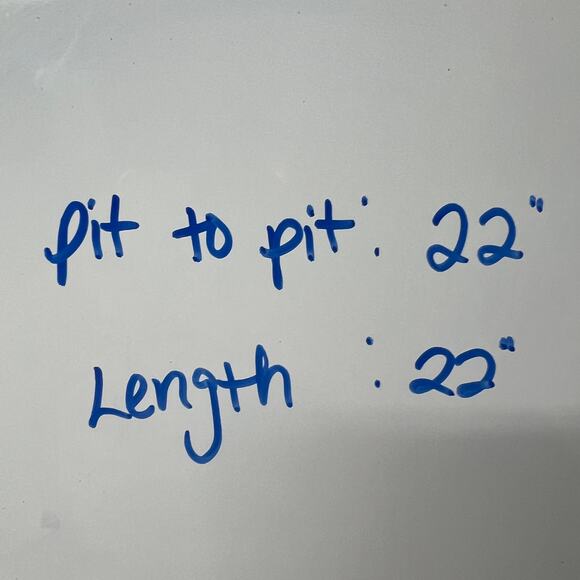 pit to pit: 22"
Length : 22"